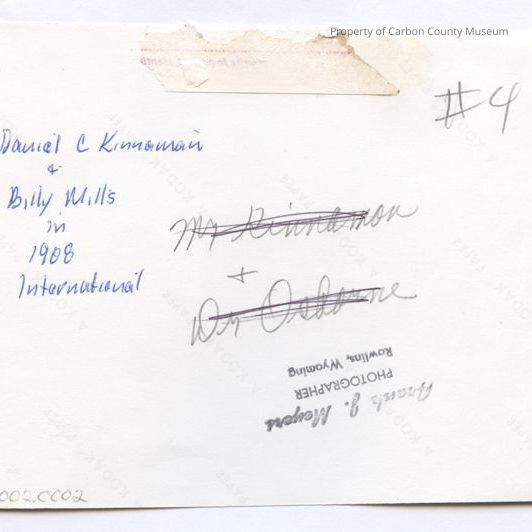 Property of Carbon County Museum
#4
Daniel C Kinnaman
+
Billy Mills
in
1908
International
Mr Kinnamon
+
Dr Osborne
Frank J. Meyers
PHOTOGRAPHER
Rawlins, Wyoming
002.CC02
A KODAK PAPER